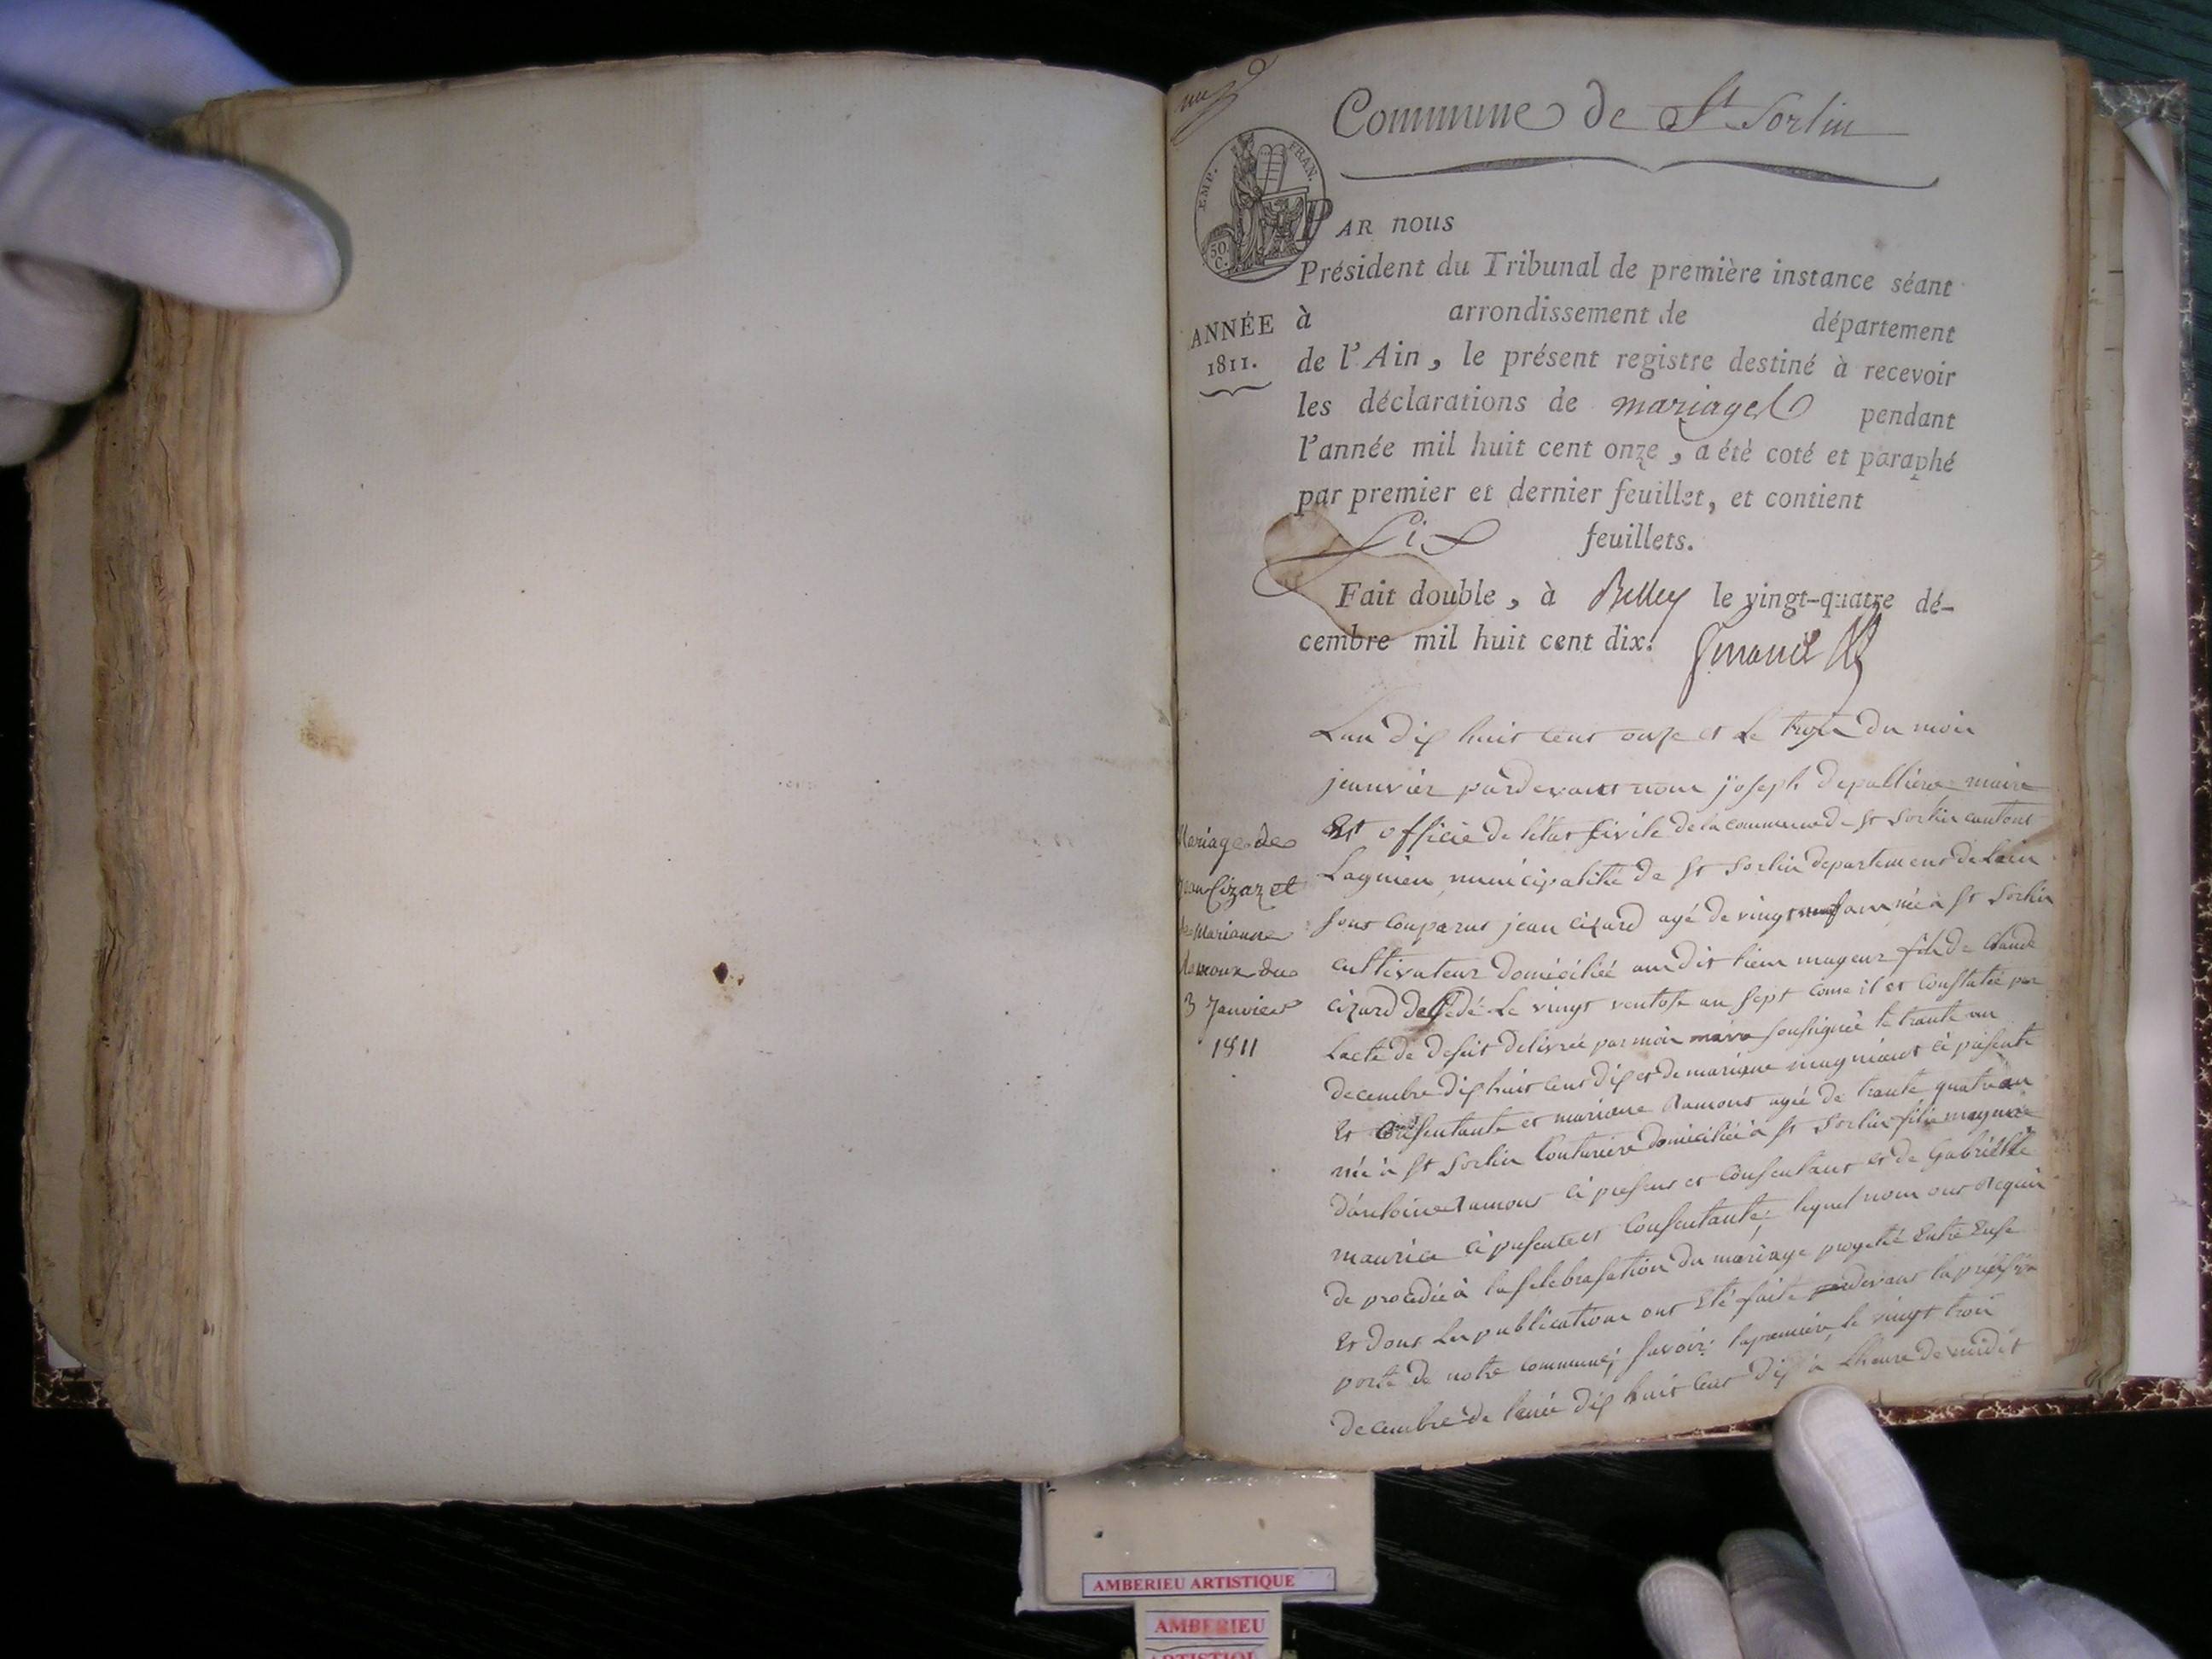 Commune de St Sorlin
EMP. FRAN.
50 C.
PAR nous
Président du Tribunal de première instance séant
à arrondissement de département
de l'Ain, le présent registre destiné à recevoir
les déclarations de mariages pendant
l'année mil huit cent onze, a été coté et paraphé
par premier et dernier feuillet, et contient
Six feuillets.
Fait double, à Belley le vingt-quatre dé-
cembre mil huit cent dix.
ANNÉE
1811.
Mariage de
jean Cizar et
de Marianne
Ramoux du
3 Janvier
1811
Lan dix huit cent onze et Le trois du mois
jeanvier pardevant nous joseph depallière maire
Et officie de letat civile de la commune de St Sorlin cantont
Lagnieu municipalitée de St Sorlin departement de Lain
sont Comparus jean cizard agé de vingt neuf ans née à St Sorlin
cultivateur domiciliée audit lieu mageur fils de Claude
cizard dessedé Le vingt ventose an sept come il et constatée par
Lacte de deseit delivrée par moi maire sousignée le trante un
decembre dix huit cent dix et de mariane magnieut ci présente
et consentante et mariane Ramout agée de trante quatre an
née à St Sorlin Couturière domiciliée à St Sorlin filie mageure
d'antoine Ramout ci present et consentant et de Gabrielle
maurice ci presente et Consentante; lequel nous ont Requis
de procedée à la selebrasation du mariage progetté Entre Euse
Et dont Les publications ont Eté faite pardevant la prinsipa
porte de notre commune; Savoir: la premiere le vingt trois
decembre de lanée dix huit cent dix à Lheure de midit
AMBERIEU ARTISTIQUE
AMBERIEU
ARTISTIQUE